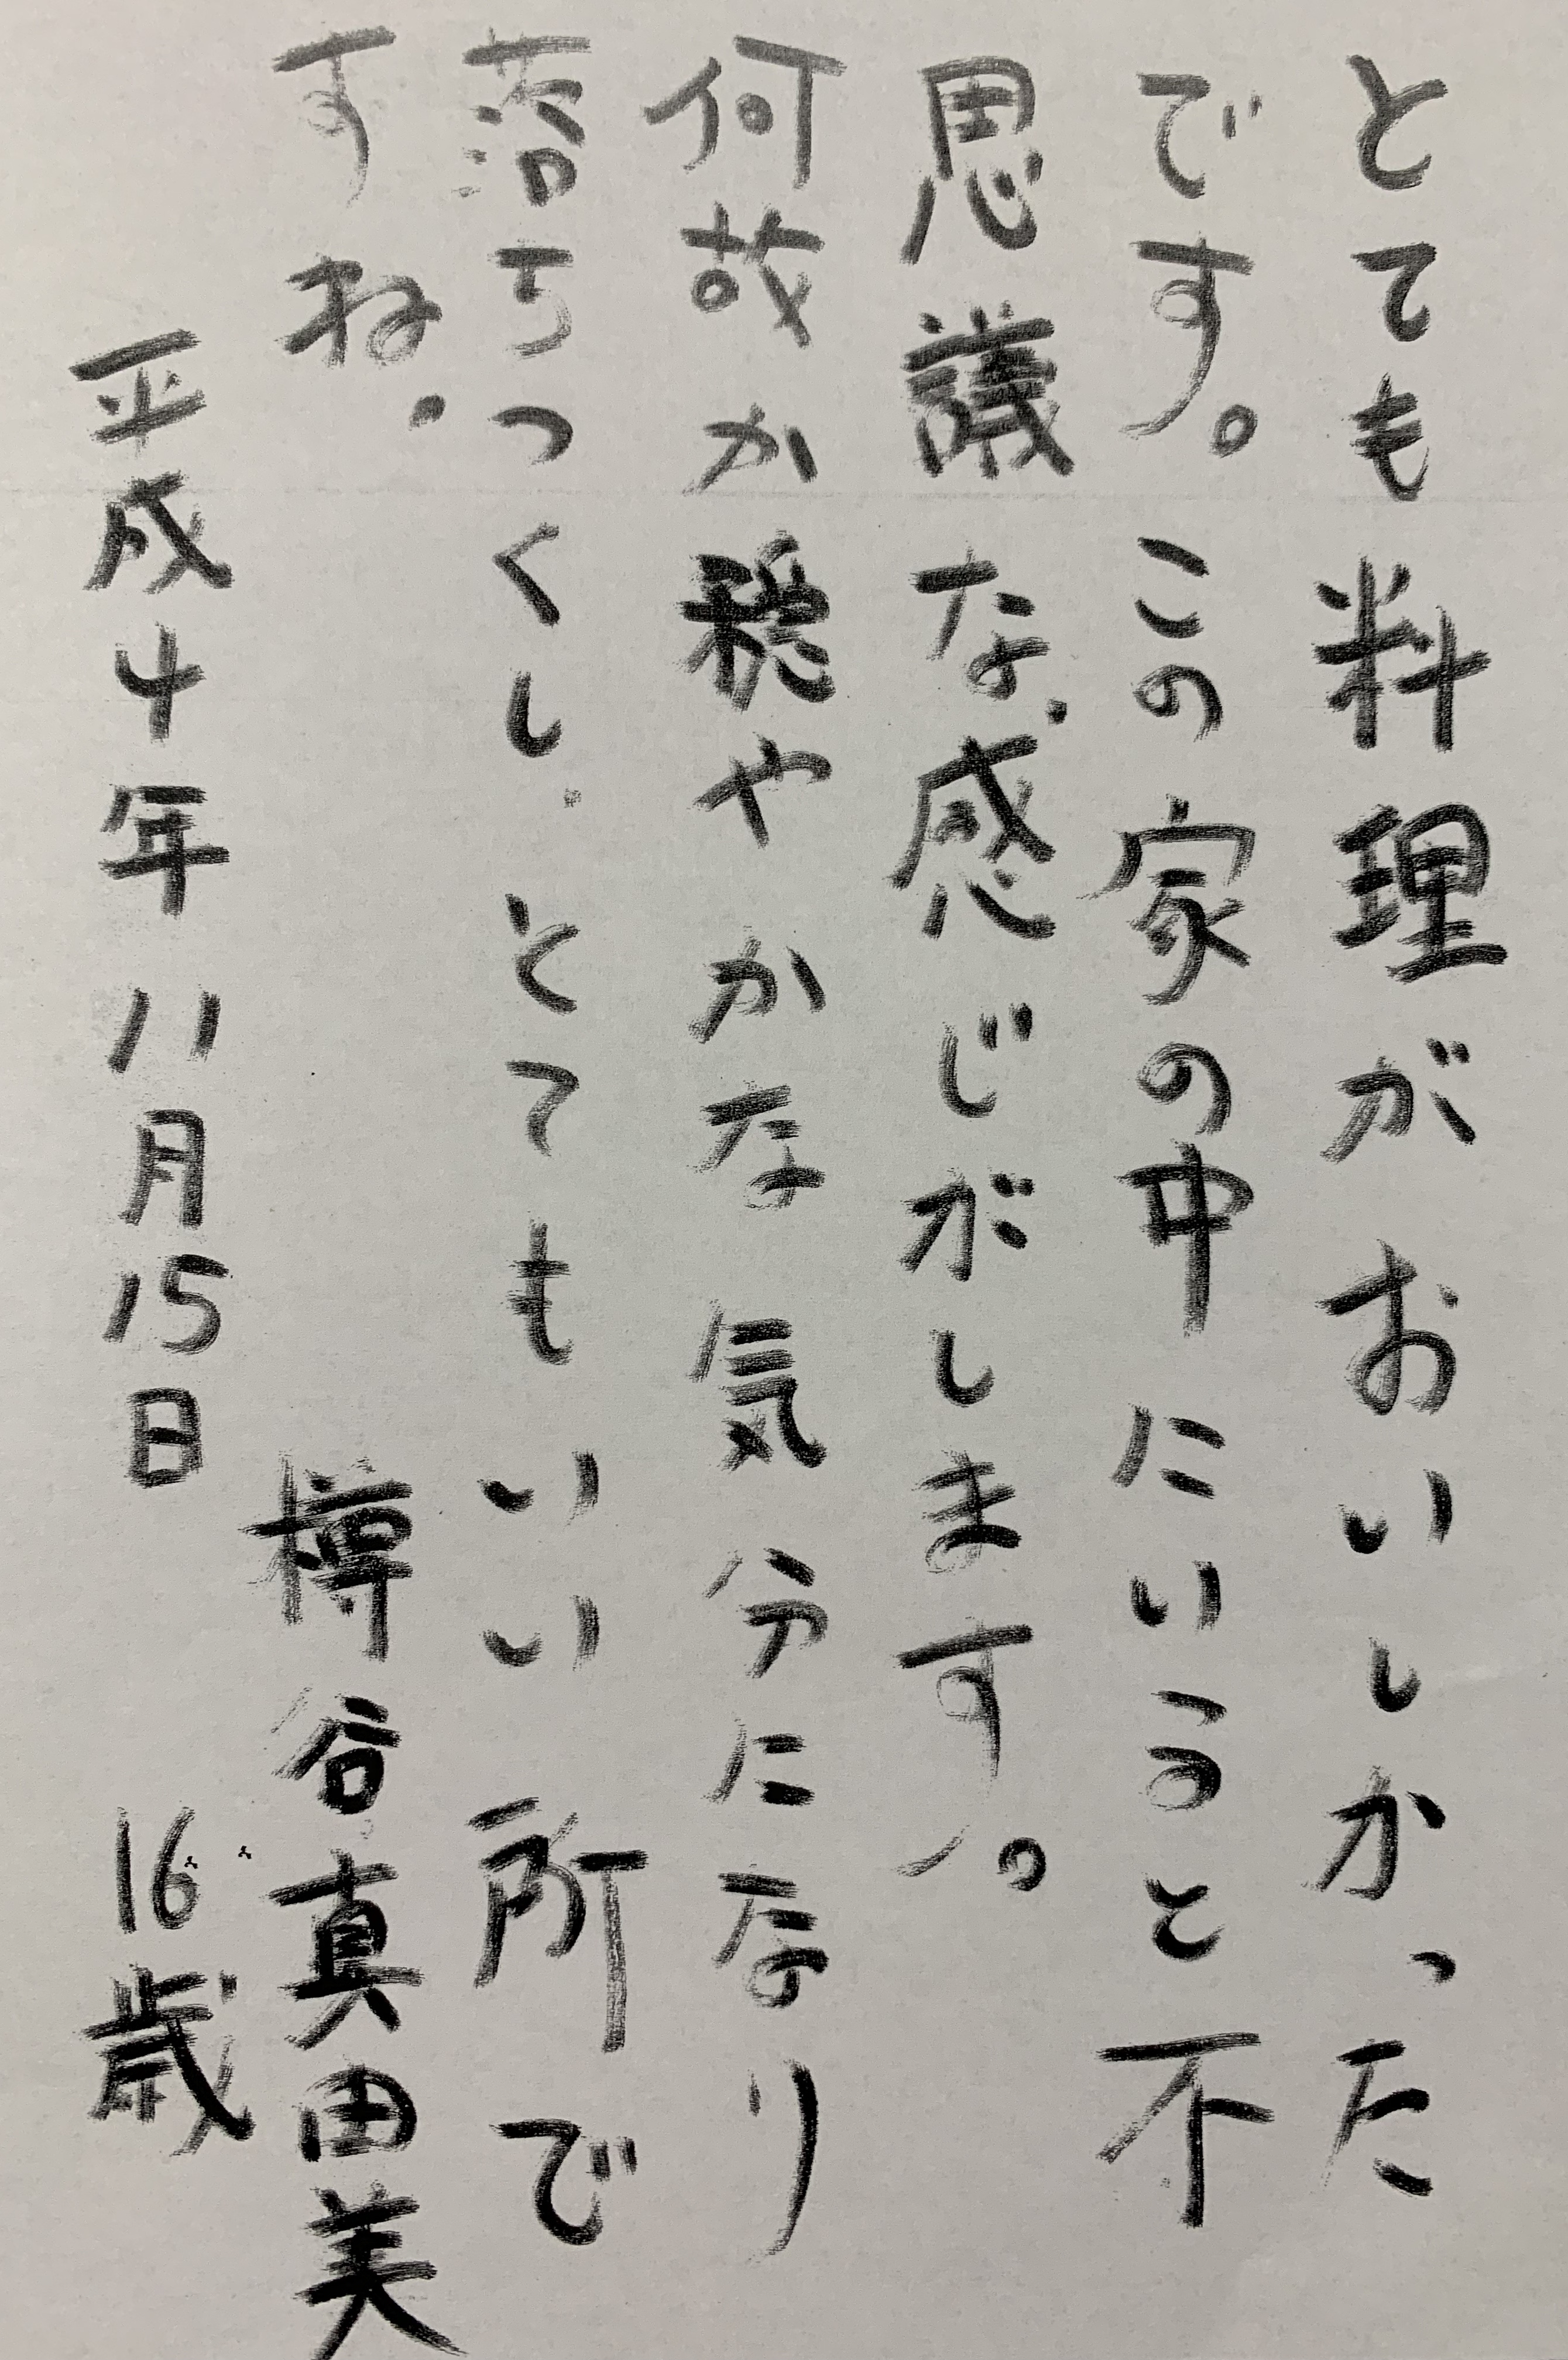 とても料理がおいしかった
です。この家の中にいうと不
思議な感じがします。
何故か穏やかな気分になり
落ちつくし、とてもいい所で
すね。
樽谷真由美
平成4年11月15日
16歳